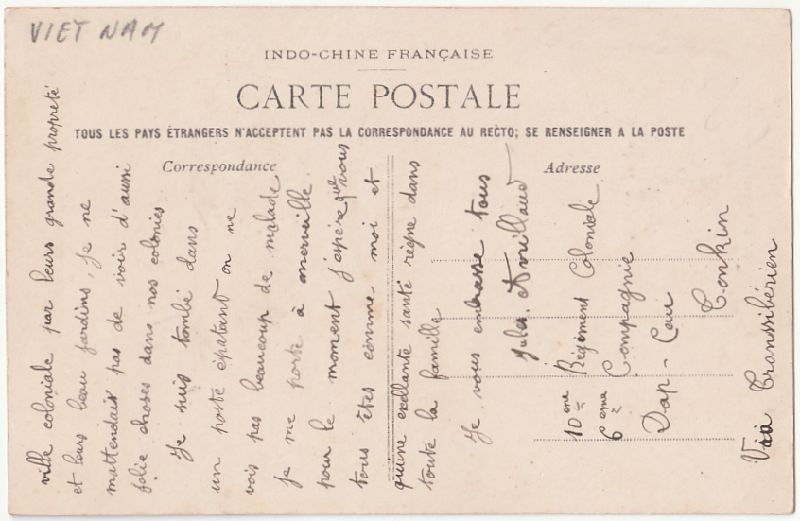 VIET NAM
INDO-CHINE FRANÇAISE
CARTE POSTALE
TOUS LES PAYS ÉTRANGERS N'ACCEPTENT PAS LA CORRESPONDANCE AU RECTO; SE RENSEIGNER A LA POSTE
Correspondance
Adresse
ville coloniale par leurs grande propreté
et leurs beau jardins, je ne
mattendais pas de voir d'aussi
jolie choses dans nos colonies
Je suis tombé dans
un poste épatant on ne
vois pas beaucoup de malade
je me porte à merveille.
pour le moment j'espère que vous
tous êtes comme-moi et
qu'une exellante santé règne dans
toute la famille
Je vous embrasse tous
Jules
10 eme Régiment Coloniale
6 eme Compagnie
Dap-Cau
Tonkin
Via Transsibérien